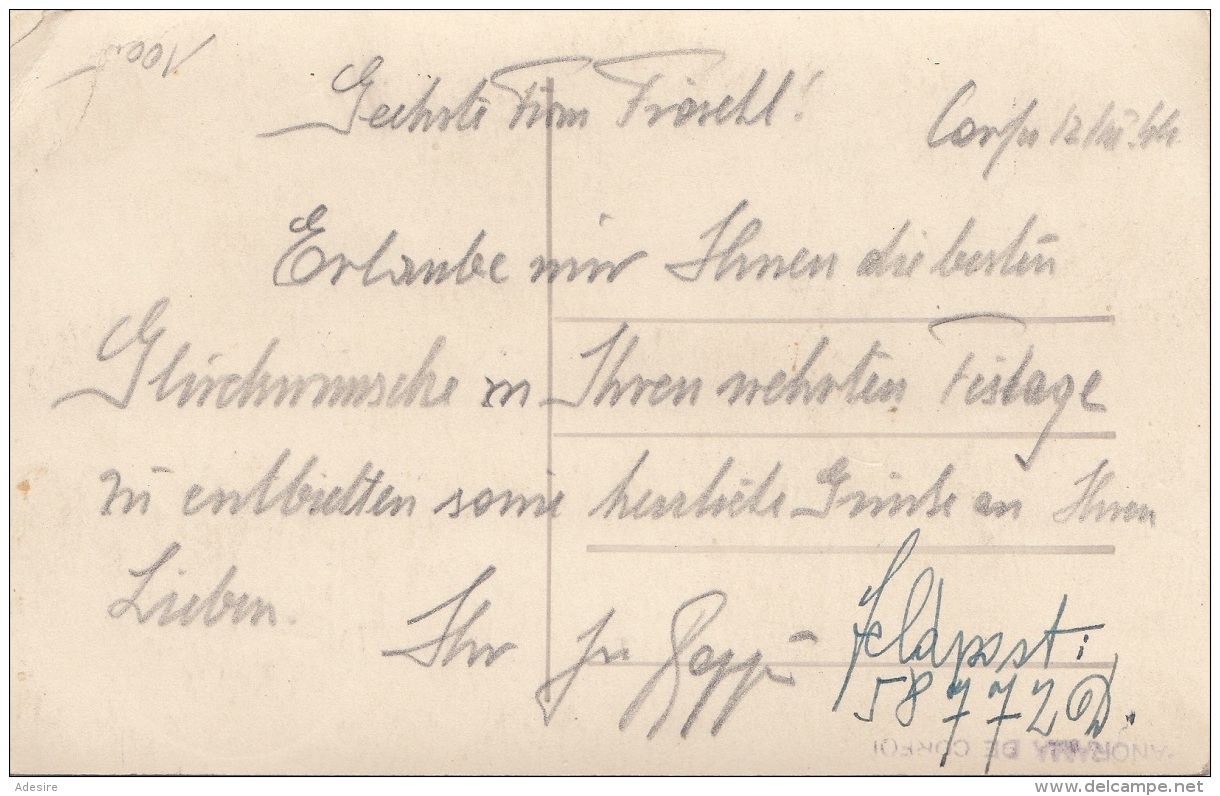 Geehrte Frau Fröschl!
Corfu 12
Erlaube mir Ihnen die besten
Glückwünsche zu Ihren wehrten Festage
zu entbietten sowie herzliche Grüße an Ihren
Lieben.
Ihr
Feldpost:
58772 D.
PANORAMA DE CORFOU
Adesire
www.delcampe.net